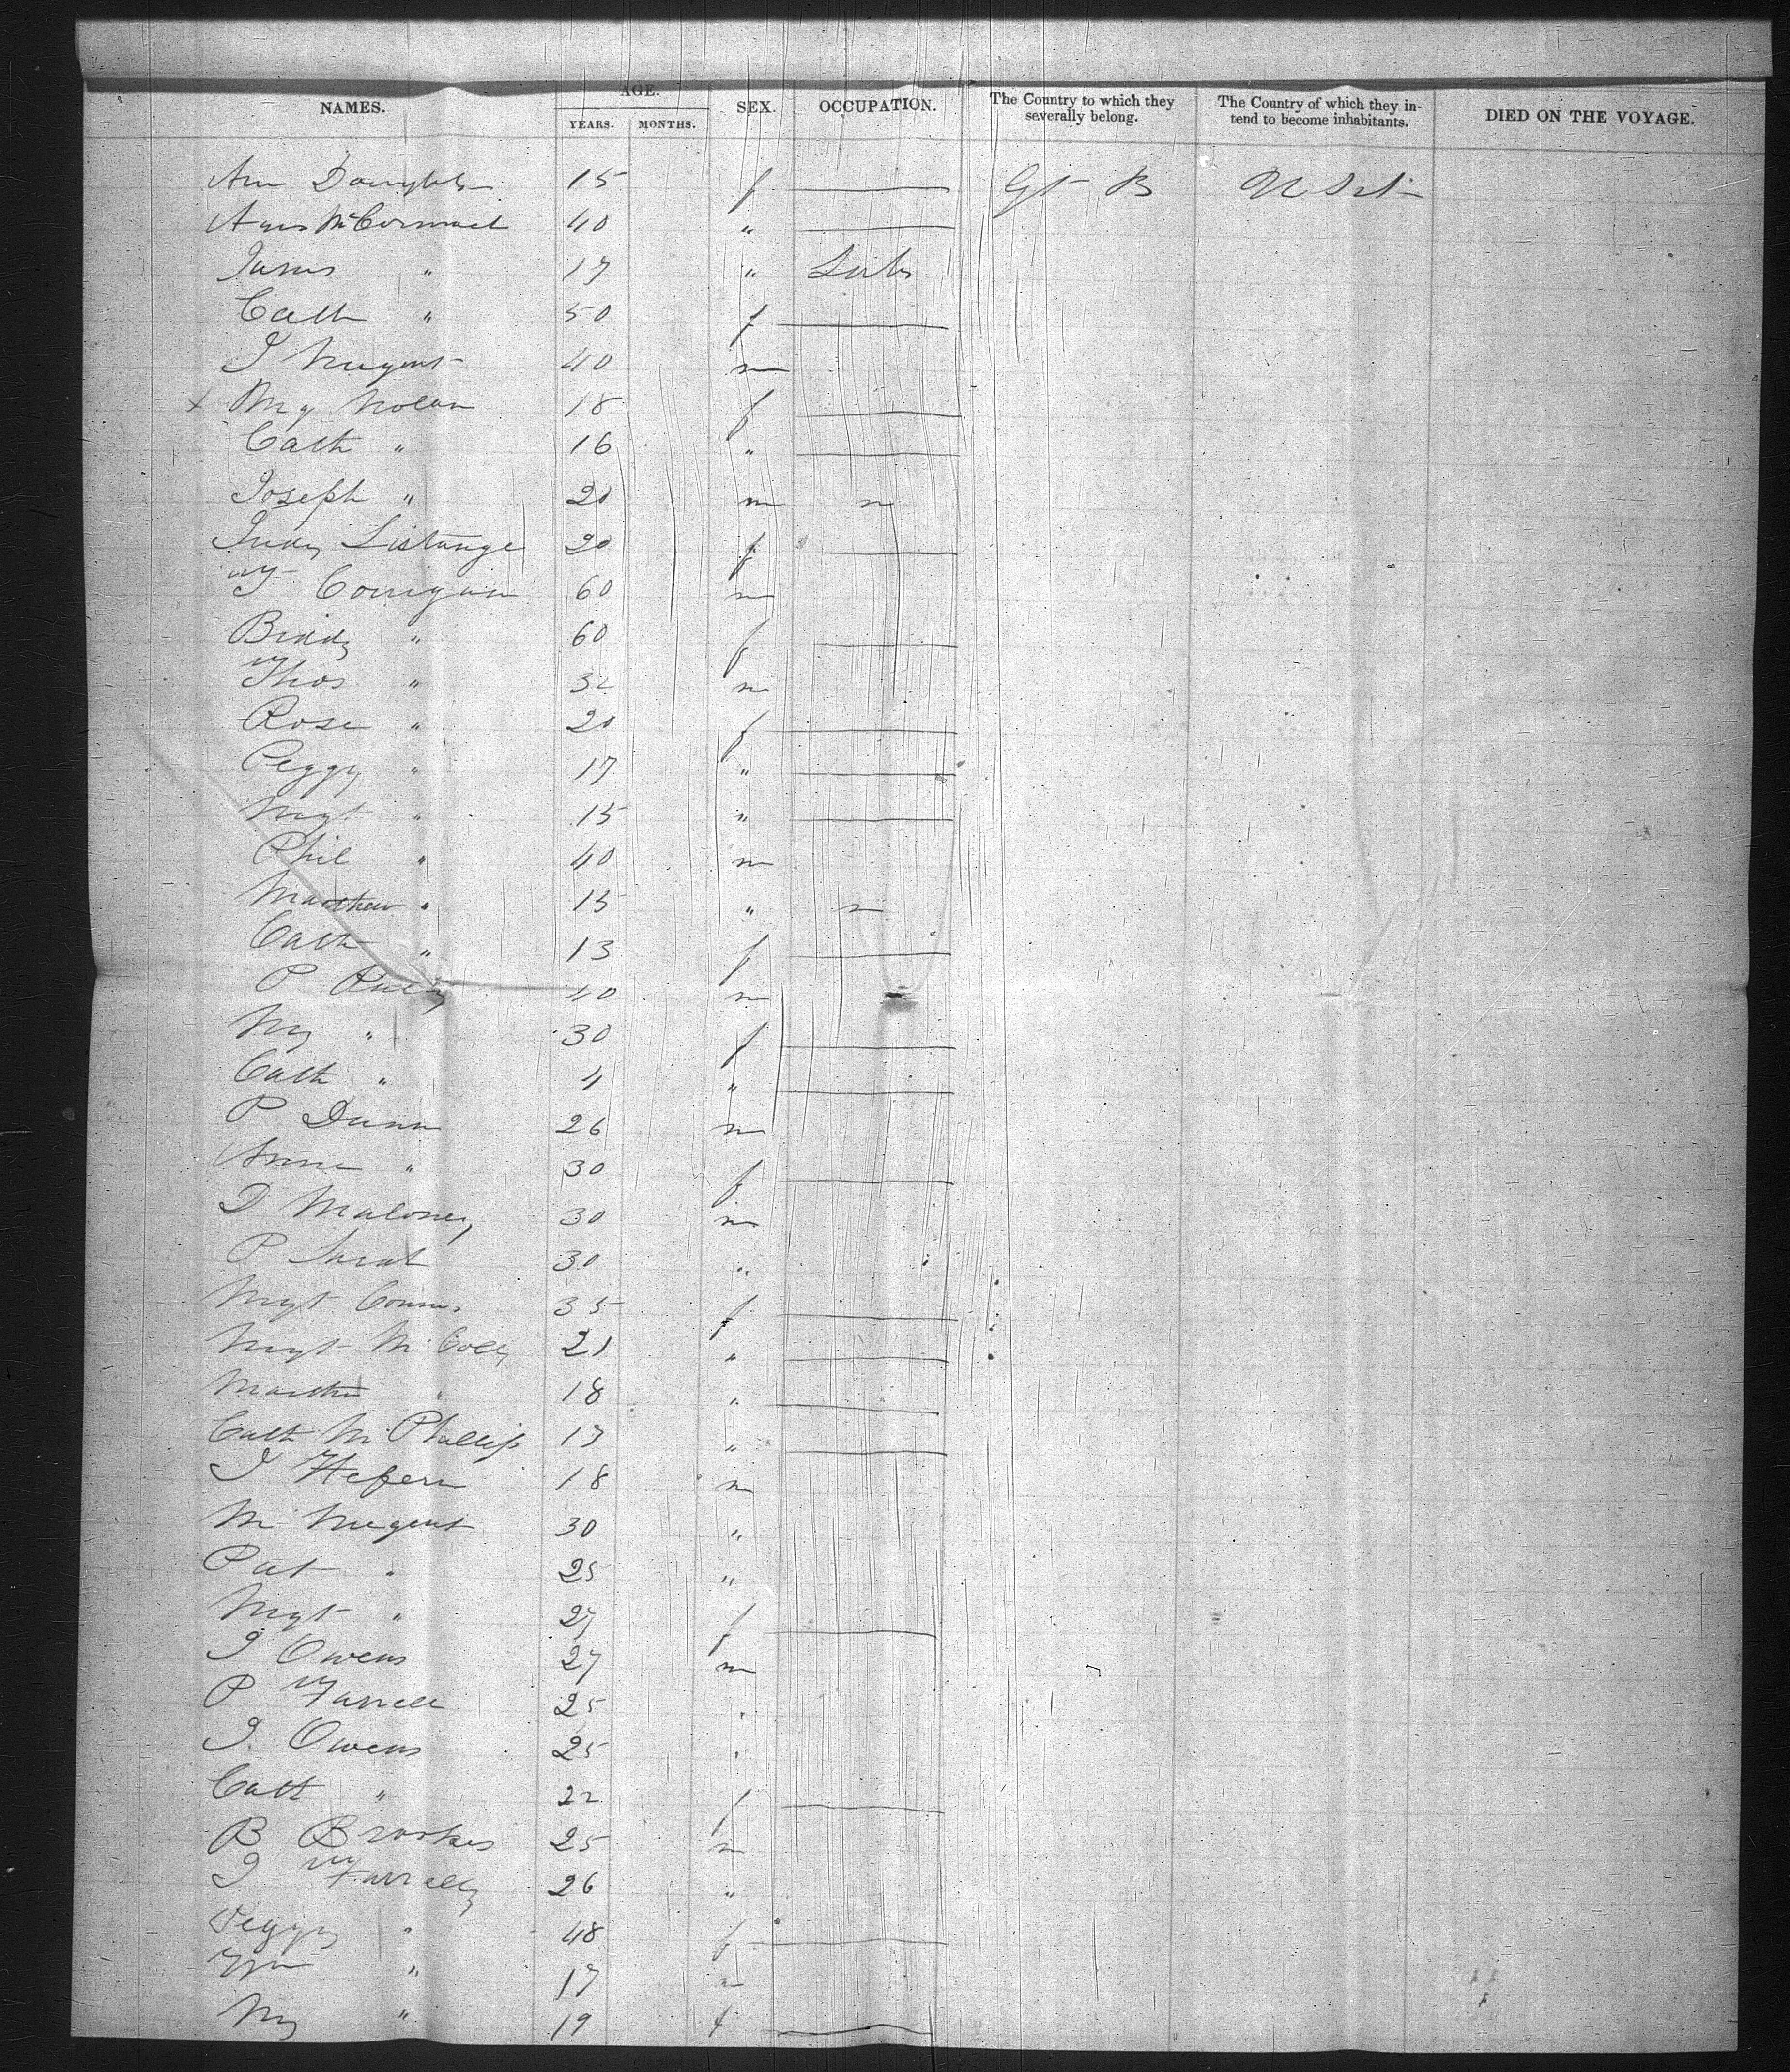 NAMES. AGE. YEARS. MONTHS. SEX. OCCUPATION. The Country to which they severally belong. The Country of which they intend to become inhabitants. DIED ON THE VOYAGE.
Ann 15 f — Gt B U
McCormack 40 " —
James " 17 "
Cath " 50 f —
J Nugent 40 m
x My Nolan 18 f —
Cath " 16 " —
Joseph " 20 m "
Judy 20 f —
T Corrigan 60 m
Biddy " 60 f —
Thos " 32 m
Rose " 20 f —
Peggy " 17 " —
Mgt " 15 " —
Phil " 40 m
Matthew " 15 " "
Cath " 13 f —
P 40 m
My " 30 f —
Cath " 4 " —
P Dunn 26 m
Anne " 30 f —
D Maloney 30 m
P 30 "
Mgt 35 f —
Mgt 21 " —
" 18 " —
Cath M Phillips 17 " —
J 18 m
M Nugent 30 "
Pat " 25 "
Mgt " 27 f —
J Owens 27 m
P Farrell 25 "
J. Owens 25 "
Cath " 22 f —
B Brookes 25 m
J Farrelly 26 "
Peggy " 48 f —
" 17 m
My " 19 f —